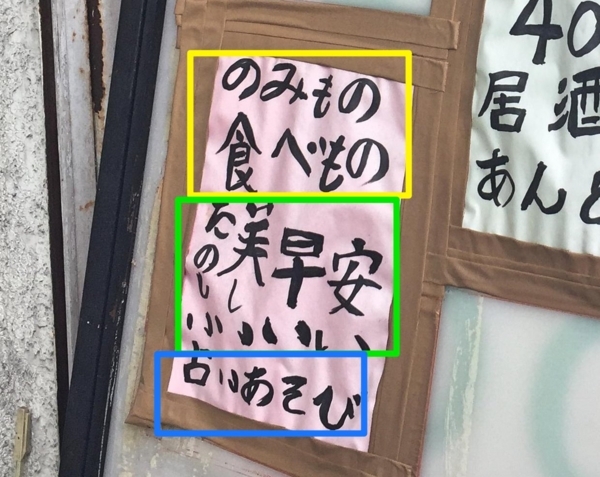 のみもの
食べもの
安い
早い
美しい
たのしい
占いあそび
40
居酒
あん